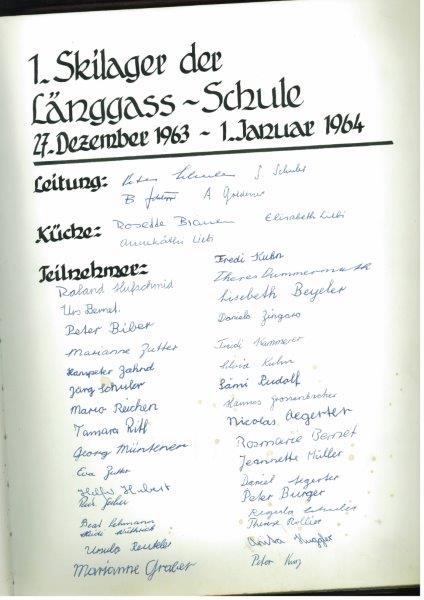 1. Skilager der
Länggass-Schule
27. Dezember 1963 - 1. Januar 1964
Leitung: Peter S. Schuler
B. A.
Küche: Rosette Elisabeth Liebi
Annekäthi Liebi
Teilnehmer: Fredi Kuhn
Roland Hufschmid Theres Dummermuth
Urs Bernet. Lisebeth Beyeler
Peter Biber Daniela Zingaro
Marianne Zutter Trudi Kammerer
Hanspeter Zahnd Silvia Kuhn
Jürg Schuler Sämi Rudolf
Mario Reichen Hannes Grossenbacher
Tamara Nicolas Aegerter
Georg Müntener Rosmarie Bernet
Eva Zutter Jeannette Müller
Hubert Daniel Aegerter
Peter Burger
Beat Lehmann Regula Schuler
Therese Rollier
Ursula Anita
Marianne Graber Peter Kunz